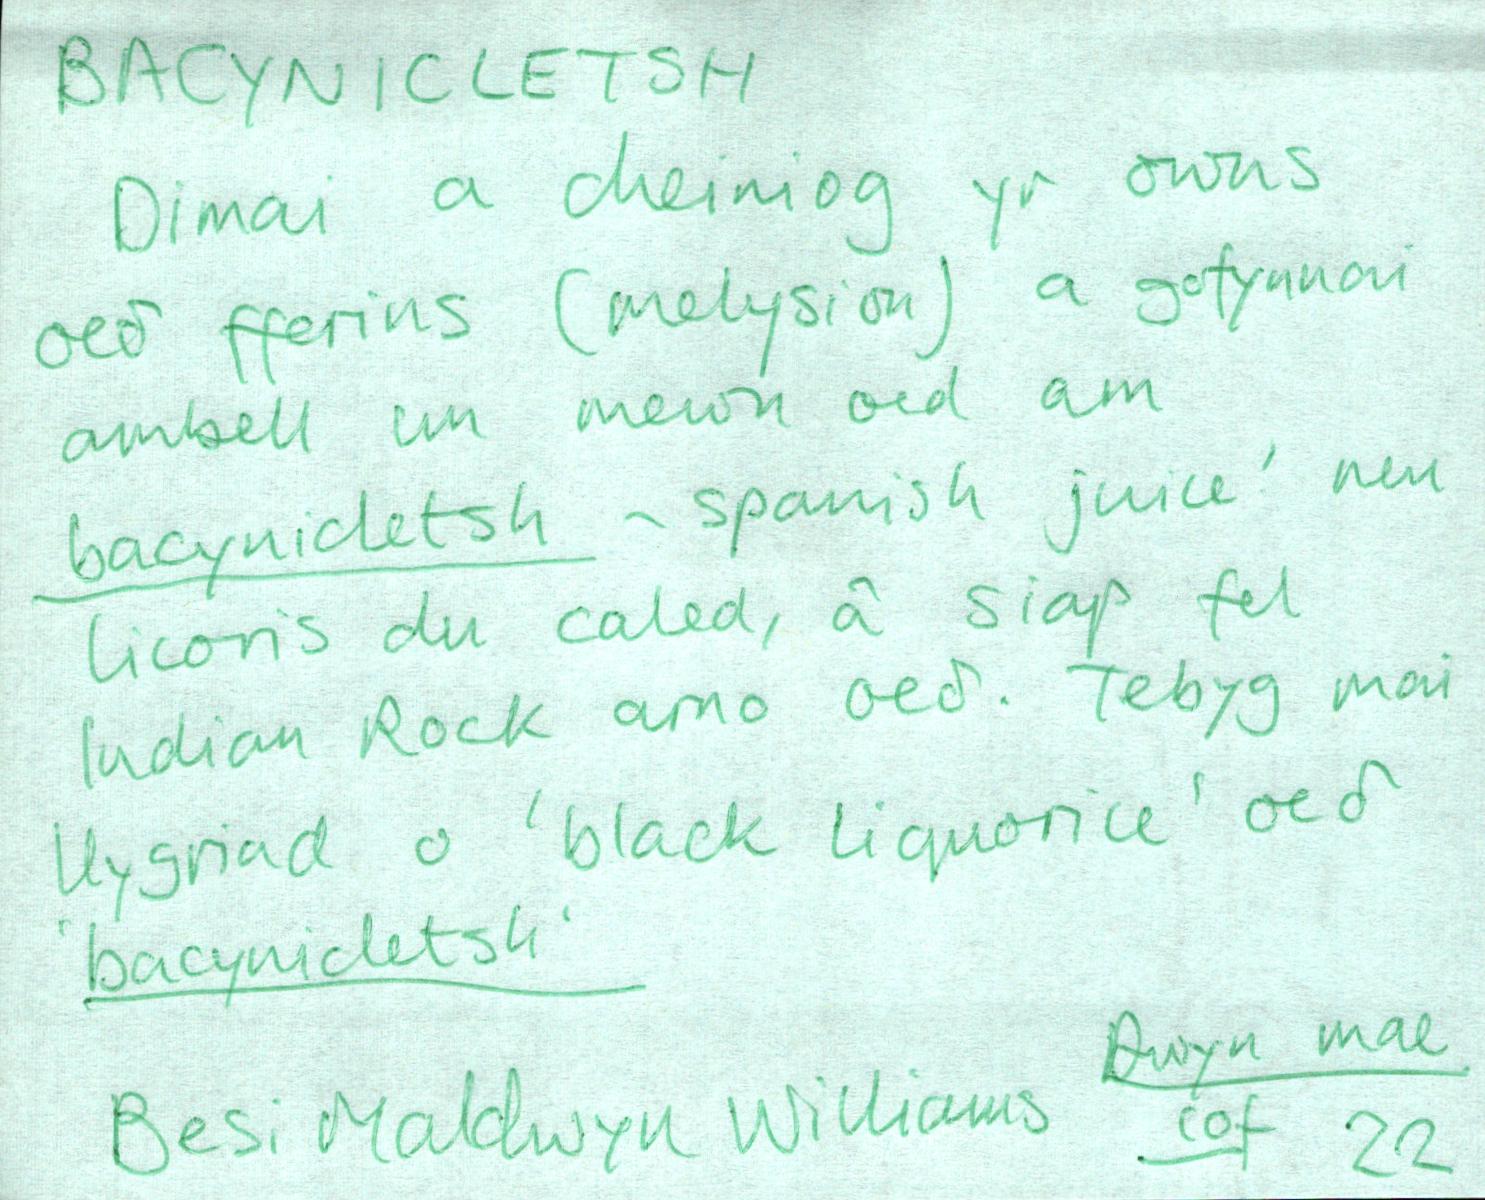 BACYNICLETSH
Dimai a cheiniog yr owns
oeð fferins (melysion) a gofynnai
ambell un mewn oed am
bacynicletsh ~ spanish juice' neu
licoris du caled, â siap fel
Indian Rock arno oeð. Tebyg mai
llygriad o 'black liquorice' oeð
'bacynicletsh'
Besi Maldwyn Williams
Dwyn mae
cof 22